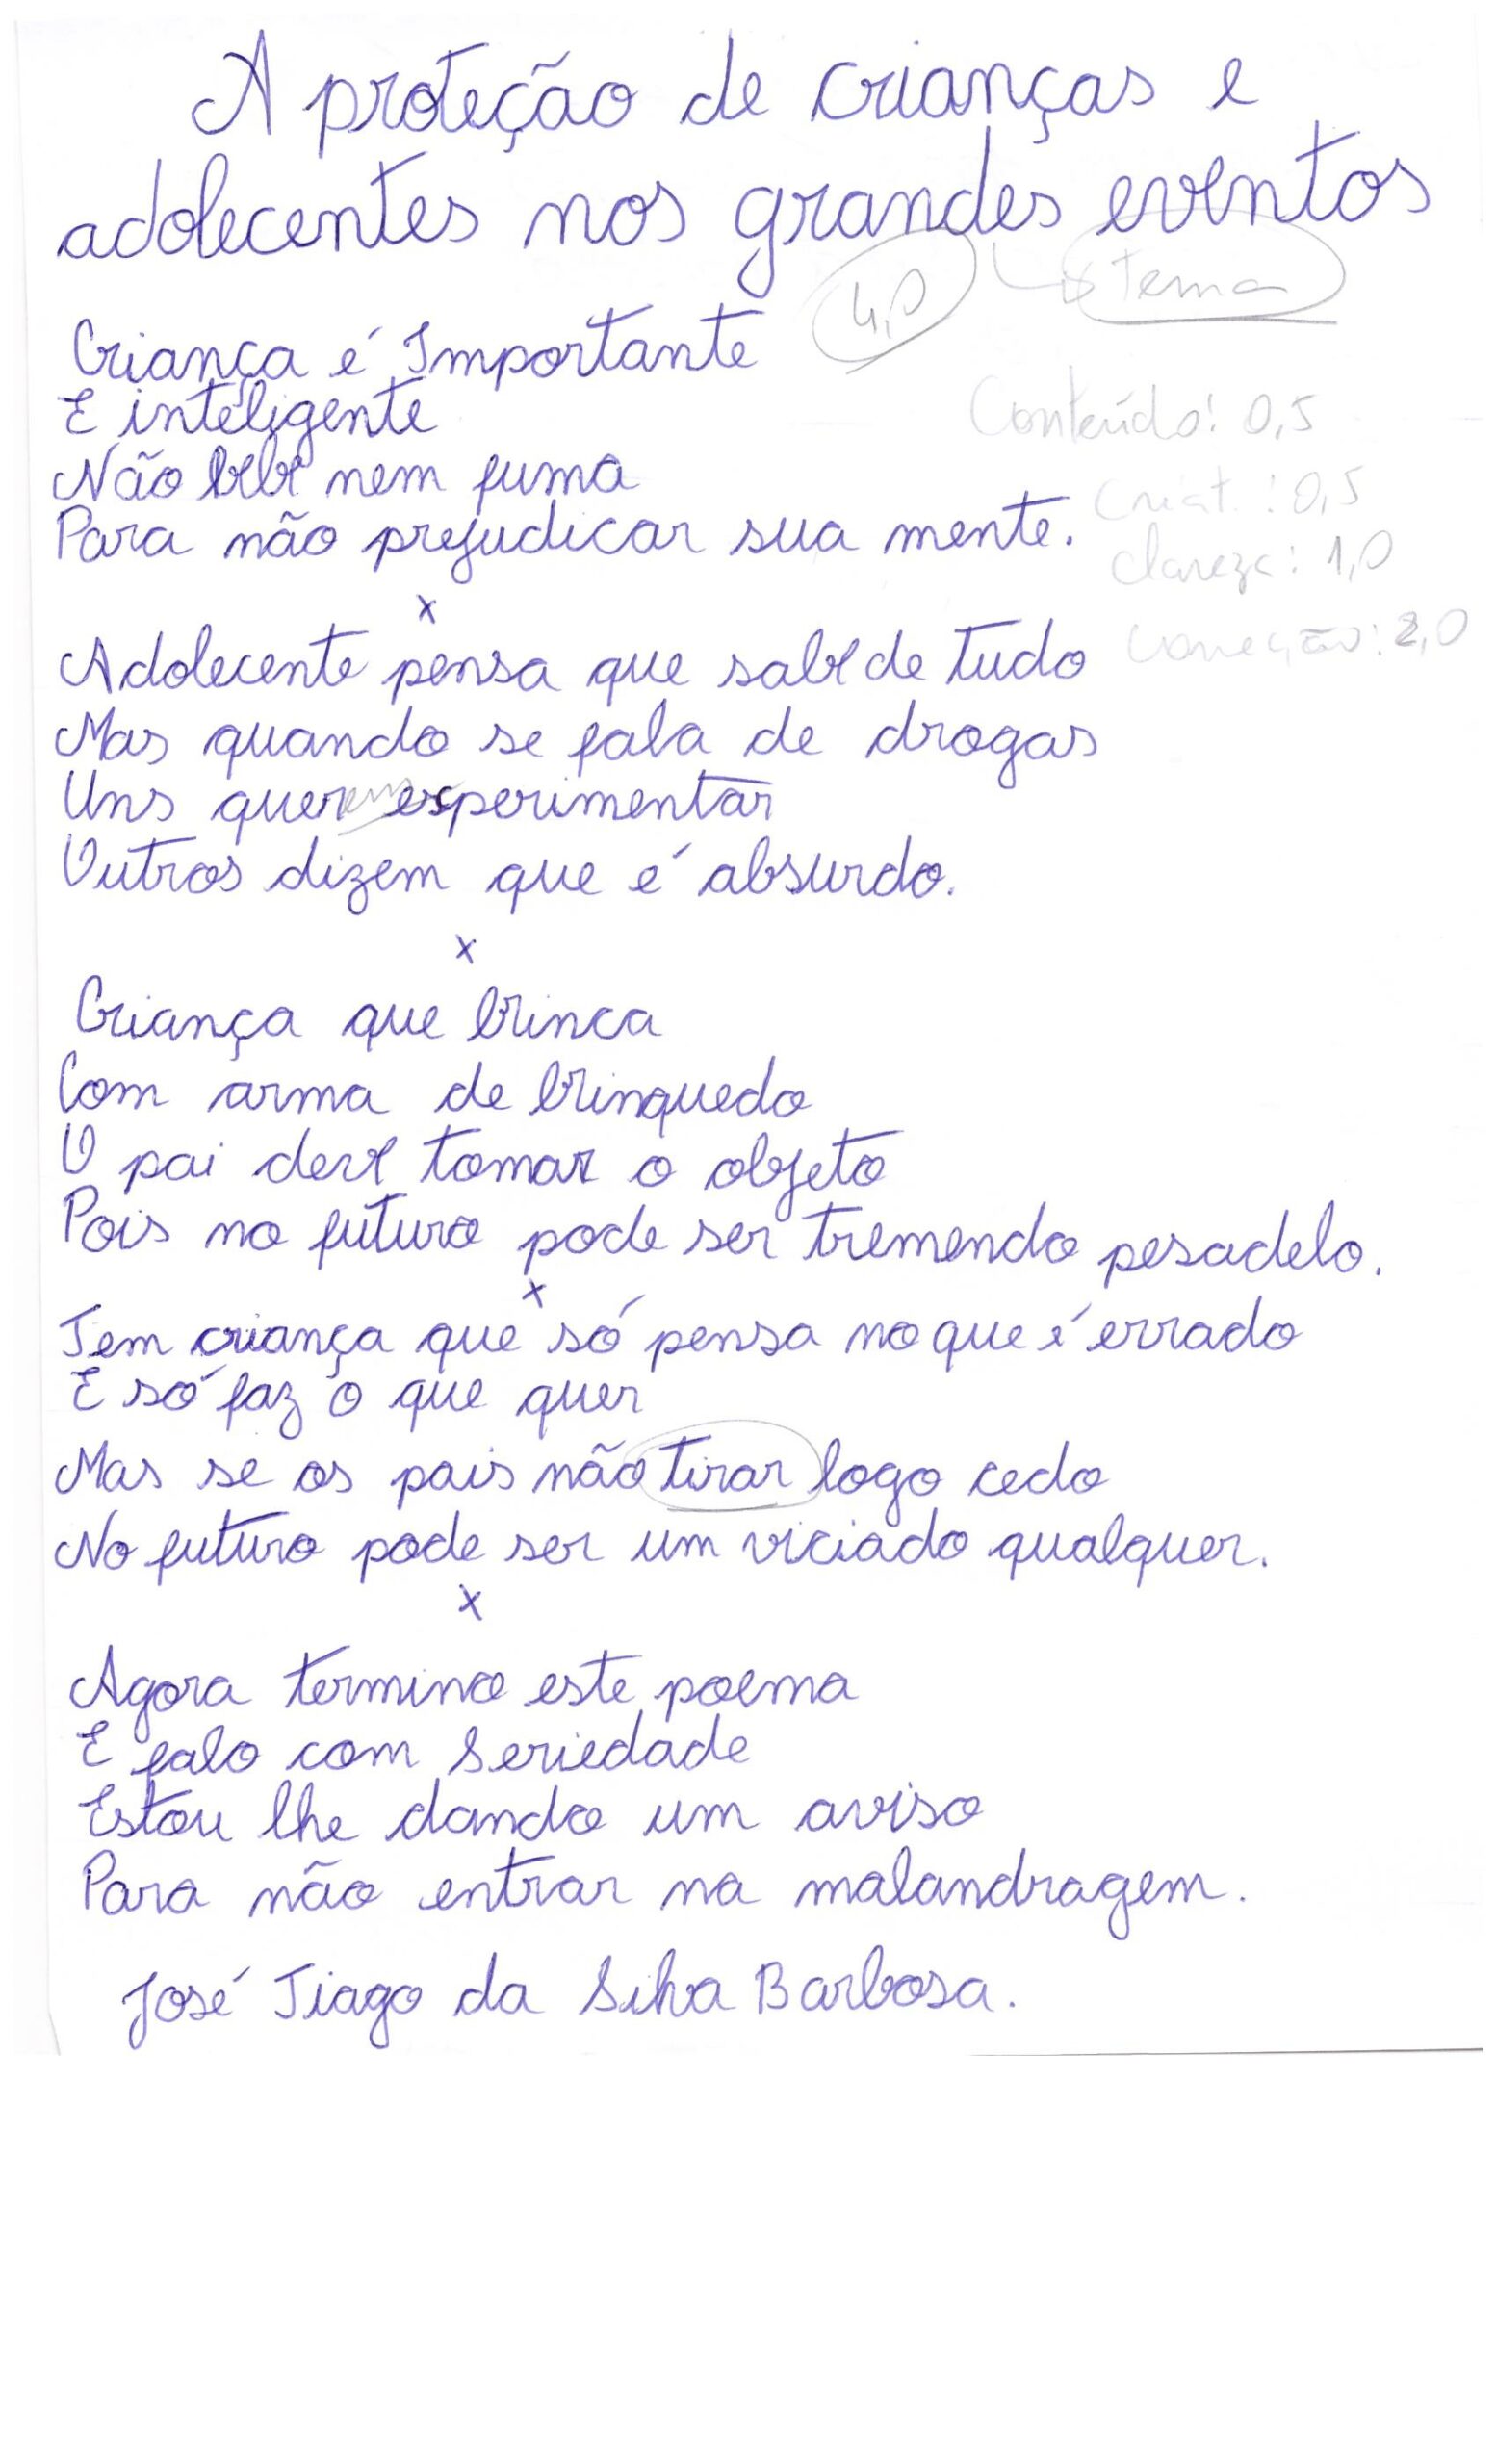 A proteção de crianças e
adolecentes nos grandes eventos
4,0
Tema
Criança é Importante
E inteligente
Conteúdo: 0,5
Não bebe nem fuma
Criat.: 0,5
Para não prejudicar sua mente.
clareza: 1,0
x
Adolecente pensa que sabe de tudo
correção: 2,0
Mas quando se fala de drogas
Uns querem experimentar
Outros dizem que é absurdo.
x
Criança que brinca
Com arma de brinquedo
O pai deve tomar o objeto
Pois no futuro pode ser tremendo pesadelo.
x
Tem criança que só pensa no que é errado
E só faz o que quer
Mas se os pais não tirar logo cedo
No futuro pode ser um viciado qualquer.
x
Agora termino este poema
E falo com Seriedade
Estou lhe dando um aviso
Para não entrar na malandragem.
José Tiago da Silva Barbosa.